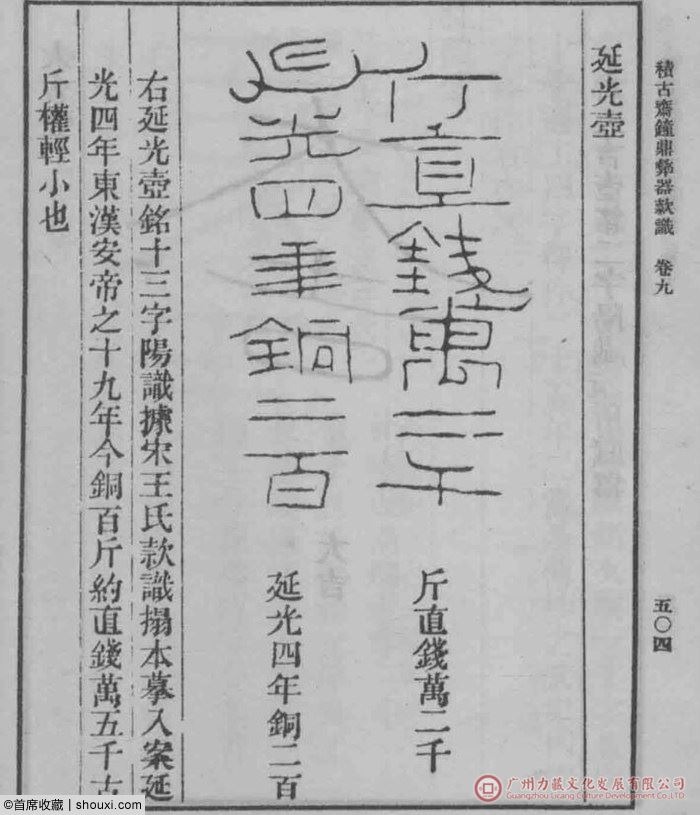 積古齋鐘鼎彝器款識 卷九 五〇四
延光壺
斤直錢萬二千
斤直錢萬二千
延光四年銅二百
延光四年銅二百
右延光壺銘十三字陽識據宋王氏款識搨本摹入案延
光四年東漢安帝之十九年今銅百斤約直錢萬五千古
斤權輕小也
广州力藏文化发展有限公司
Guangzhou Licang Culture Development Co.,Ltd.
©首席收藏 | shouxi.com